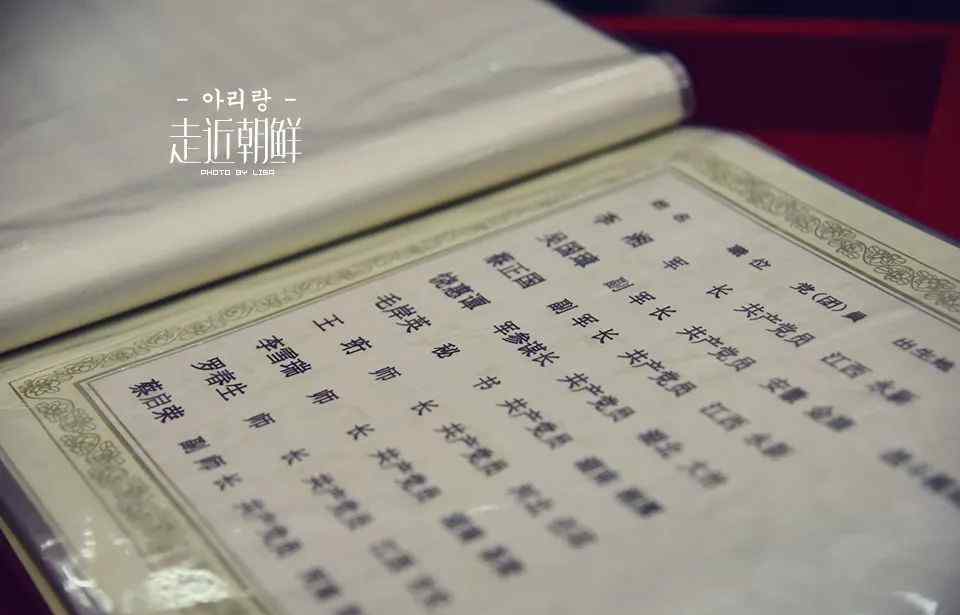 - 아리랑 -
走近朝鲜
PHOTO BY LISA
姓名 職位 党(团)員 出生地
李湘 军长 共产党员 江西 永新
吴国璋 副军长 共产党员 安徽 金寨
蔡正国 副军长 共产党员 江西 永新
饶惠谭 军参谋长 共产党员 湖北 大冶
毛岸英 秘书 共产党员 湖南 湘潭
王珩 师长 共产党员
李雪瑞 师长 共产党员
罗春生 师长 共产党员
蔡启荣 副师长 共产党员